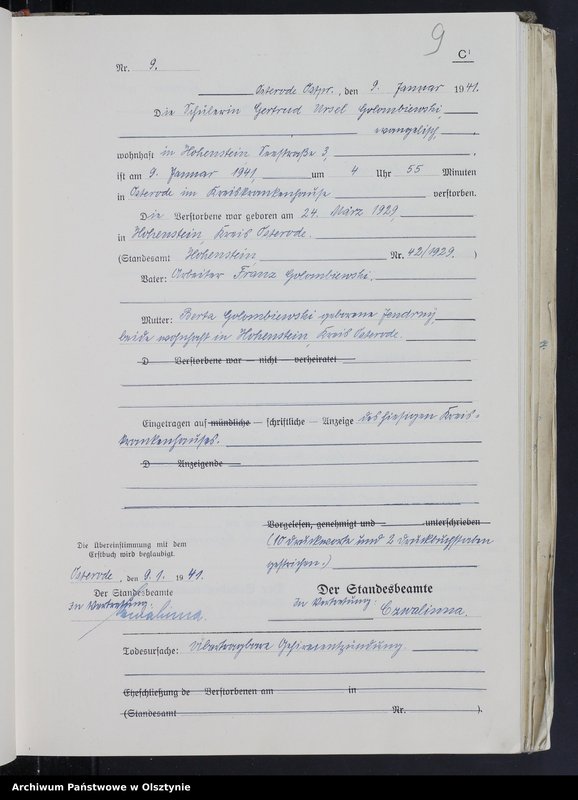 9
C¹
Nr. 9.
Osterode Ostpr., den 9. Januar 1941.
Die Schülerin Gertrud Ursel Golombiewski,
evangelisch,
wohnhaft in Hohenstein Seestraße 3,
ist am 9. Januar 1941 um 4 Uhr 55 Minuten
in Osterode im Kreiskrankenhause verstorben.
Die Verstorbene war geboren am 24. März 1929
in Hohenstein, Kreis Osterode.
(Standesamt Hohenstein Nr. 42/1929.)
Vater: Arbeiter Franz Golombiewski.
Mutter: Berta Golombiewski geborene Jendrny
beide wohnhaft in Hohenstein, Kreis Osterode.
D Verstorbene war — nicht — verheiratet
Eingetragen auf mündliche — schriftliche — Anzeige des hiesigen Kreis-
krankenhauses.
D Anzeigende
Vorgelesen, genehmigt und unterschrieben
(10 Druckworte und 2 Druckbuchstaben
gestrichen.)
Die Übereinstimmung mit dem
Erstbuch wird beglaubigt.
Osterode, den 9.1. 1941.
Der Standesbeamte
In Vertretung.
Czwalinna.
Der Standesbeamte
In Vertretung.
Czwalinna.
Todesursache: Übertragbare Gehirnentzündung.
Eheschließung de Verstorbenen am in
(Standesamt Nr. ).
Archiwum Państwowe w Olsztynie